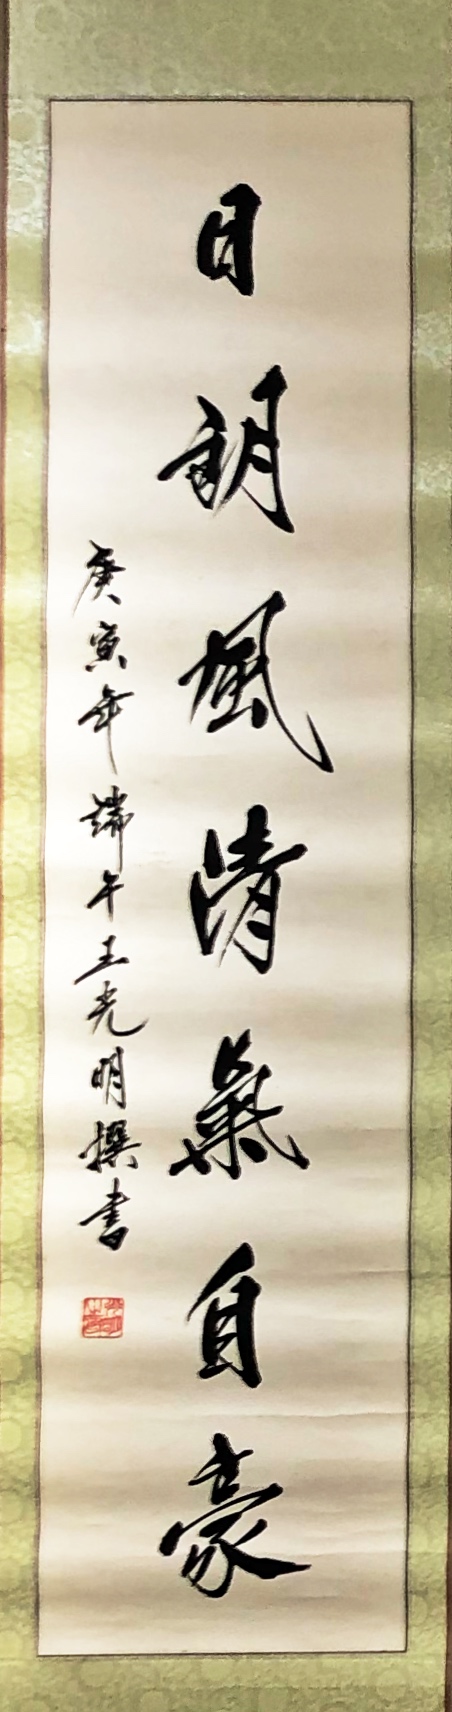 日朗風清氣自豪
庚寅年端午王光明撰書